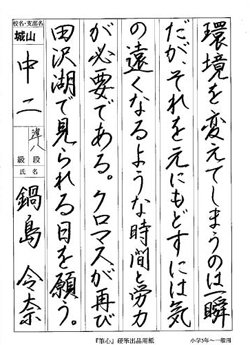 環境を変えてしまうのは一瞬
だが、それを元にもどすには気
の遠くなるような時間と労力
が必要である。クロマスが再び
田沢湖で見られる日を願う。
校名・支部名
城山
中二
級 段
氏 名
鍋島 令奈
『筆心』硬筆出品用紙
小学5年〜一般用